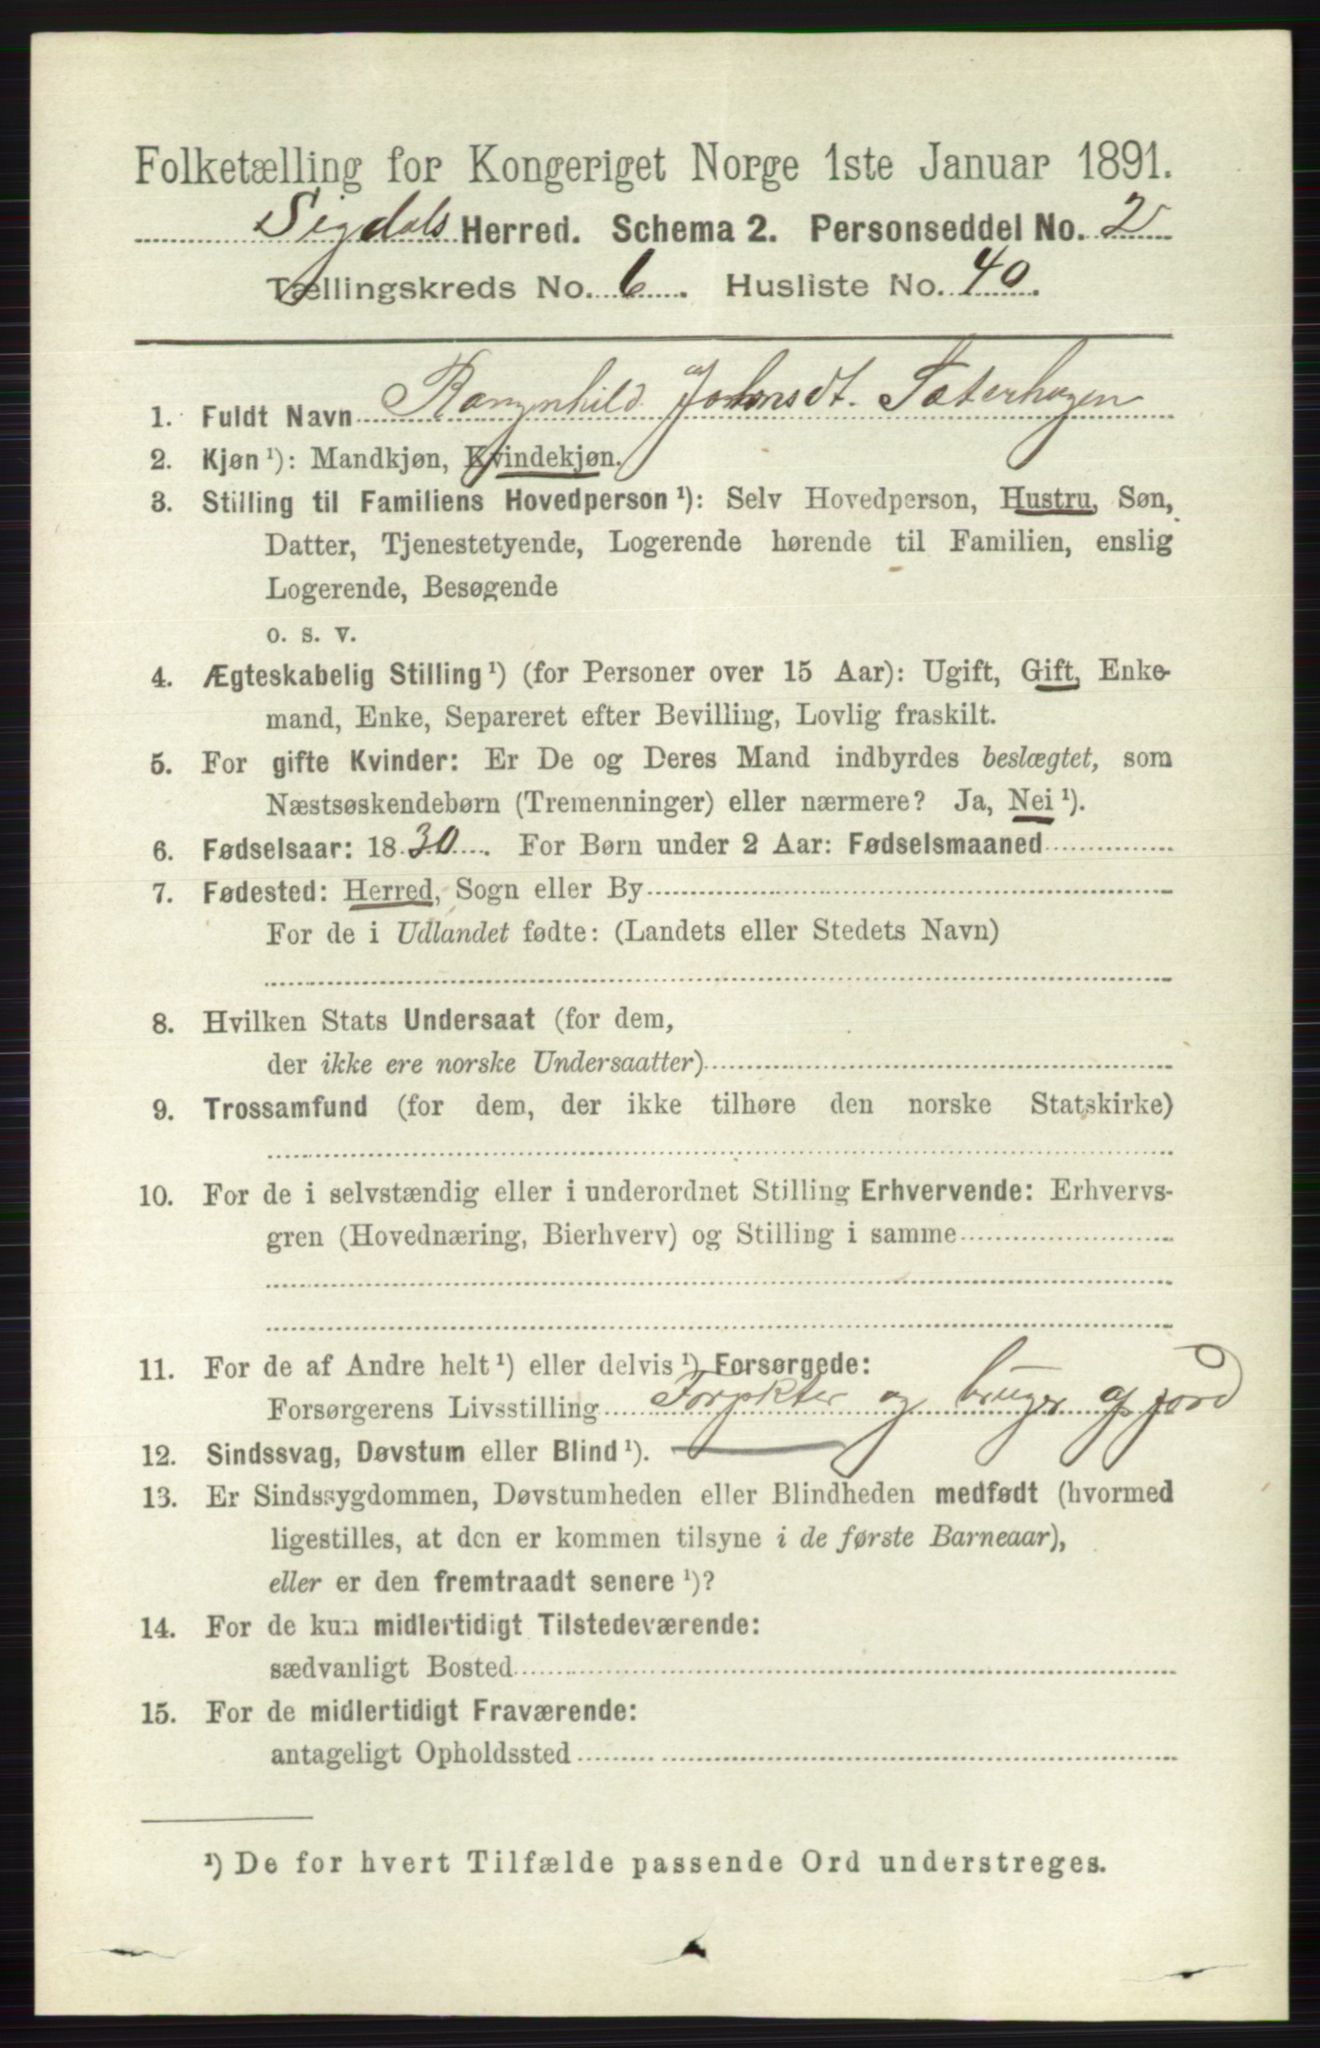 Folketælling for Kongeriget Norge 1ste Januar 1891.
Sigdals Herred. Schema 2. Personseddel No. 2
Tællingskreds No. 6. Husliste No. 40.
1. Fuldt Navn Rangenhild Johnsdt. Sæterhagen
2. Kjøn ¹): Mandkjøn, Kvindekjøn.
3. Stilling til Familiens Hovedperson ¹): Selv Hovedperson, Hustru, Søn,
Datter, Tjenestetyende, Logerende hørende til Familien, enslig
Logerende, Besøgende
o. s. v.
4. Ægteskabelig Stilling ¹) (for Personer over 15 Aar): Ugift, Gift, Enke-
mand, Enke, Separeret efter Bevilling, Lovlig fraskilt.
5. For gifte Kvinder: Er De og Deres Mand indbyrdes beslægtet, som
Næstsøskendebørn (Tremenninger) eller nærmere? Ja, Nei ¹).
6. Fødselsaar: 1830. For Børn under 2 Aar: Fødselsmaaned
7. Fødested: Herred, Sogn eller By
For de i Udlandet fødte: (Landets eller Stedets Navn)
8. Hvilken Stats Undersaat (for dem,
der ikke ere norske Undersaatter)
9. Trossamfund (for dem, der ikke tilhøre den norske Statskirke)
10. For de i selvstændig eller i underordnet Stilling Erhvervende: Erhvervs-
gren (Hovednæring, Bierhverv) og Stilling i samme
11. For de af Andre helt ¹) eller delvis ¹) Forsørgede:
Forsørgerens Livsstilling og bruger af jord
12. Sindssvag, Døvstum eller Blind ¹).
13. Er Sindssygdommen, Døvstumheden eller Blindheden medfødt (hvormed
ligestilles, at den er kommen tilsyne i de første Barneaar),
eller er den fremtraadt senere ¹)?
14. For de kun midlertidigt Tilstedeværende:
sædvanligt Bosted
15. For de midlertidigt Fraværende:
antageligt Opholdssted
¹) De for hvert Tilfælde passende Ord understreges.